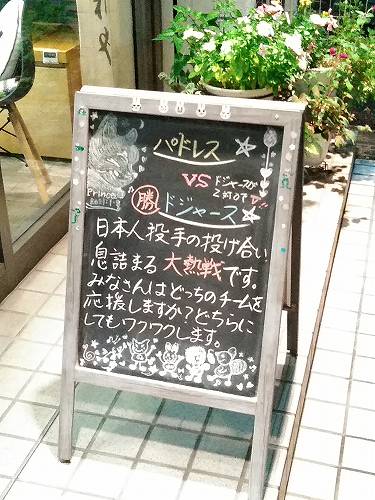 パドレス
VS
ドジャースが
2対0で
勝 ドジャース
Prince
日本人投手の投げ合い
息詰まる 大熱戦です。
みなさんはどっちのチームを
応援しますか?どちらに
してもワクワクします。